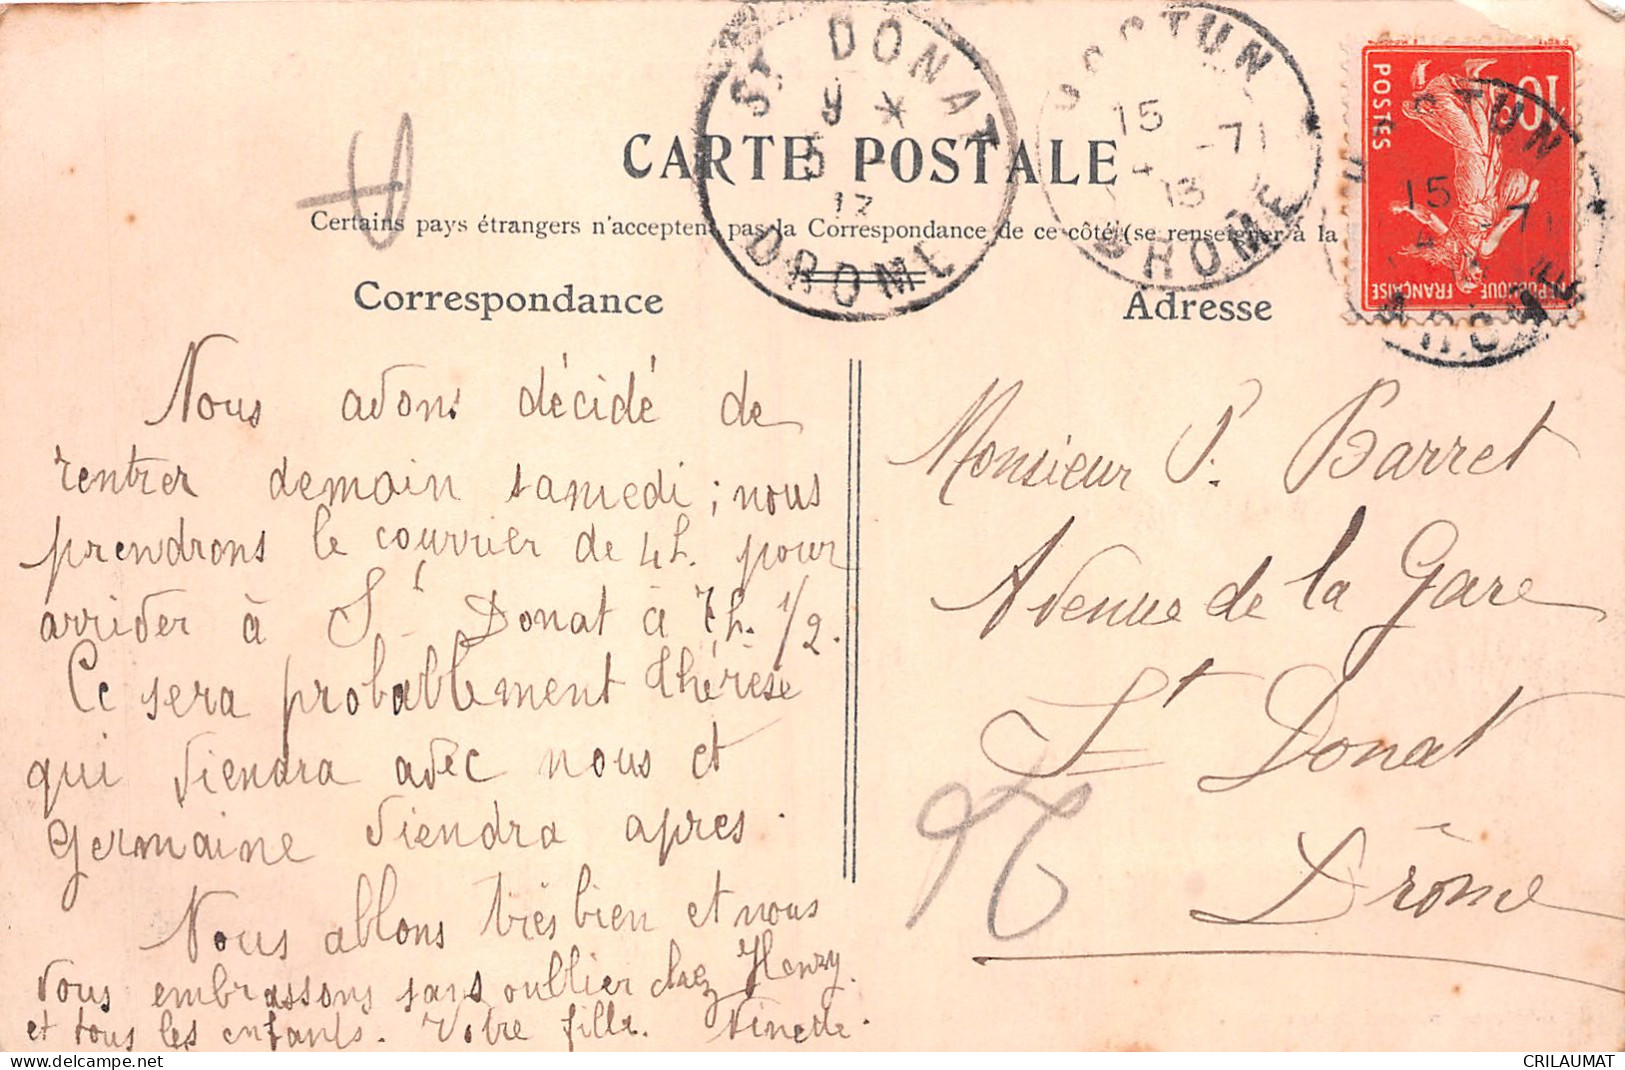 CARTE POSTALE
Certains pays étrangers n'acceptent pas la Correspondance de ce côté (se renseigner à la
Correspondance
Adresse
ST DONAT
5 -
13
DROME
15
4 -71
13
DROME
POSTES
10
REPUBLIQUE FRANÇAISE
15
71
Nous avons décidé de
rentrer demain samedi ; nous
prendrons le courrier de 4h. pour
arriver à St Donat à 7h. 1/2.
Ce sera probablement thérèse
qui viendra avec nous et
Germaine viendra apres.
Nous allons très bien et nous
vous embrassons sans oublier chez Henry.
et tous les enfants. Votre fille. Finette.
Monsieur P. Barret
Avenue de la Gare
St Donat
Drôme
CRILAUMAT